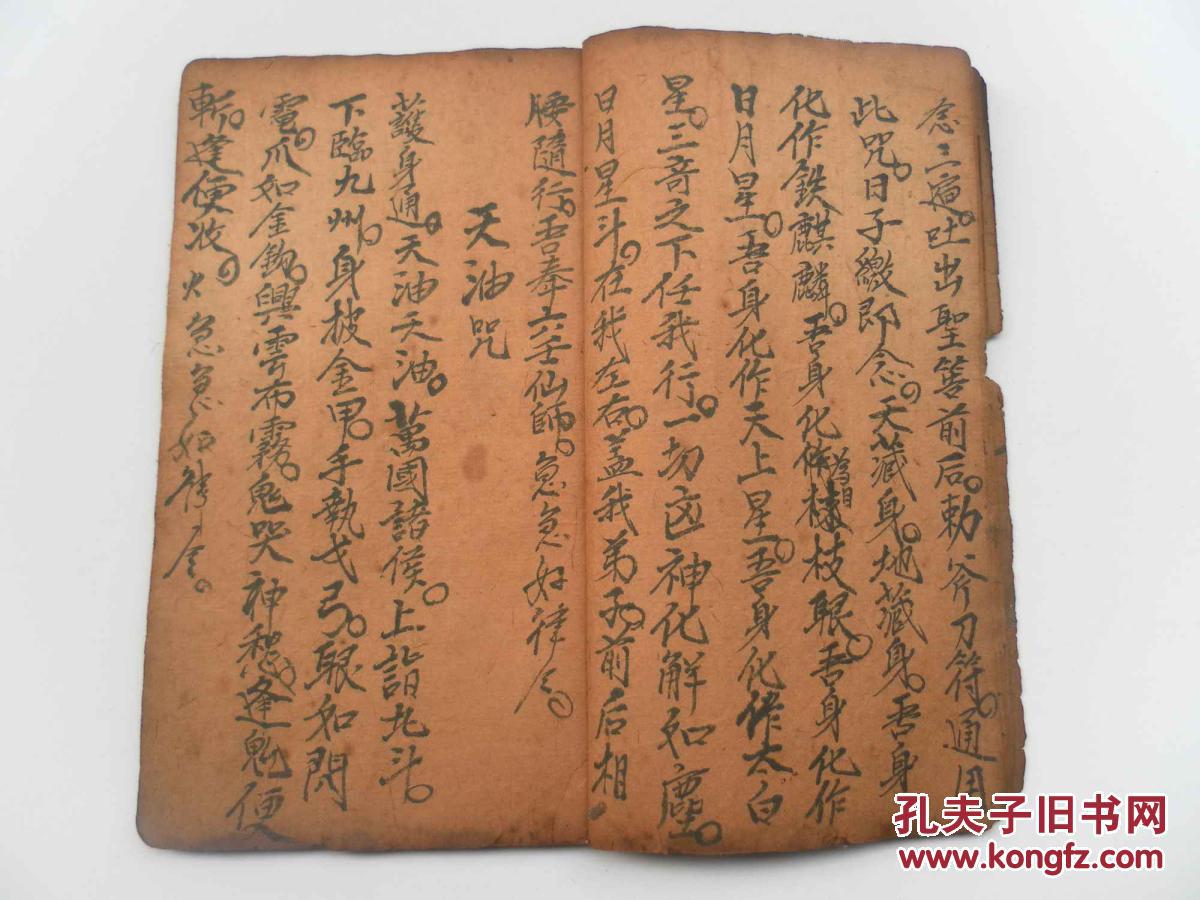 念三遍。吐出聖筶前后。勅斧刀符。通用
此咒。日子繳即念。天藏身。地藏身。吾身
化作鉄麒麟。吾身化作樣枝眼。吾身化作
為相
日月星。吾身化作天上星。吾身化作太白
星。三奇之下任我行。一切凶神化解如塵。
日月星斗。在我左右。盖我弟子。前后相
腰隨行。吾奉六壬仙師。急急如律令。
天油咒
護身通。天油天油。萬國諸侯。上詣九斗。
下臨九州。身披金甲。手執戈弓。眼如閃
電。爪如金鈎。興雲布霧。鬼哭神愁。逢鬼便
斬。逢便收。火急急如律令。
孔夫子旧书网
www.kongfz.com